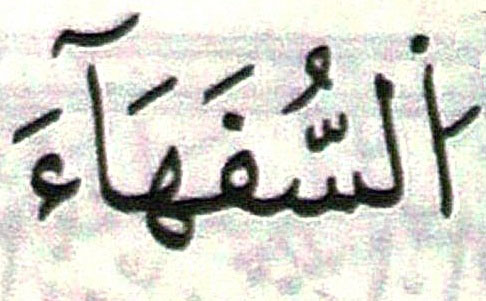 اُ۬لسُّفَهَآءَ